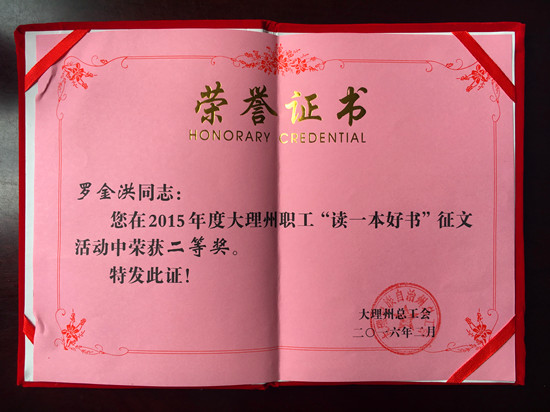 荣誉证书
HONORARY CREDENTIAL
罗金洪同志：
您在2015年度大理州职工“读一本好书”征文
活动中荣获二等奖。
特发此证！
大理州总工会
二〇一六年二月